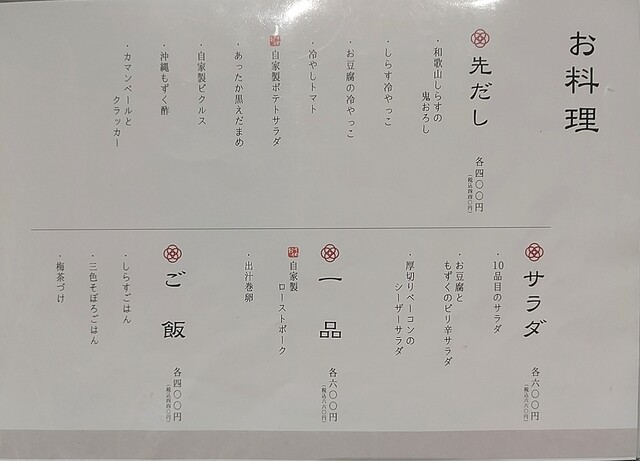 お料理
先だし
各四〇〇円
（税込四四〇円）
・和歌山しらすの
鬼おろし
・しらす冷やっこ
・お豆腐の冷やっこ
・冷やしトマト
自家製ポテトサラダ
・あったか黒えだまめ
・自家製ピクルス
・沖縄もずく酢
・カマンベールと
クラッカー
サラダ
各六〇〇円
（税込六六〇円）
・10品目のサラダ
・お豆腐と
もずくのピリ辛サラダ
・厚切りベーコンの
シーザーサラダ
一品
各六〇〇円
（税込六六〇円）
自家製
ローストポーク
・出汁巻卵
ご飯
各四〇〇円
（税込四四〇円）
・しらすごはん
・三色そぼろごはん
・梅茶づけ